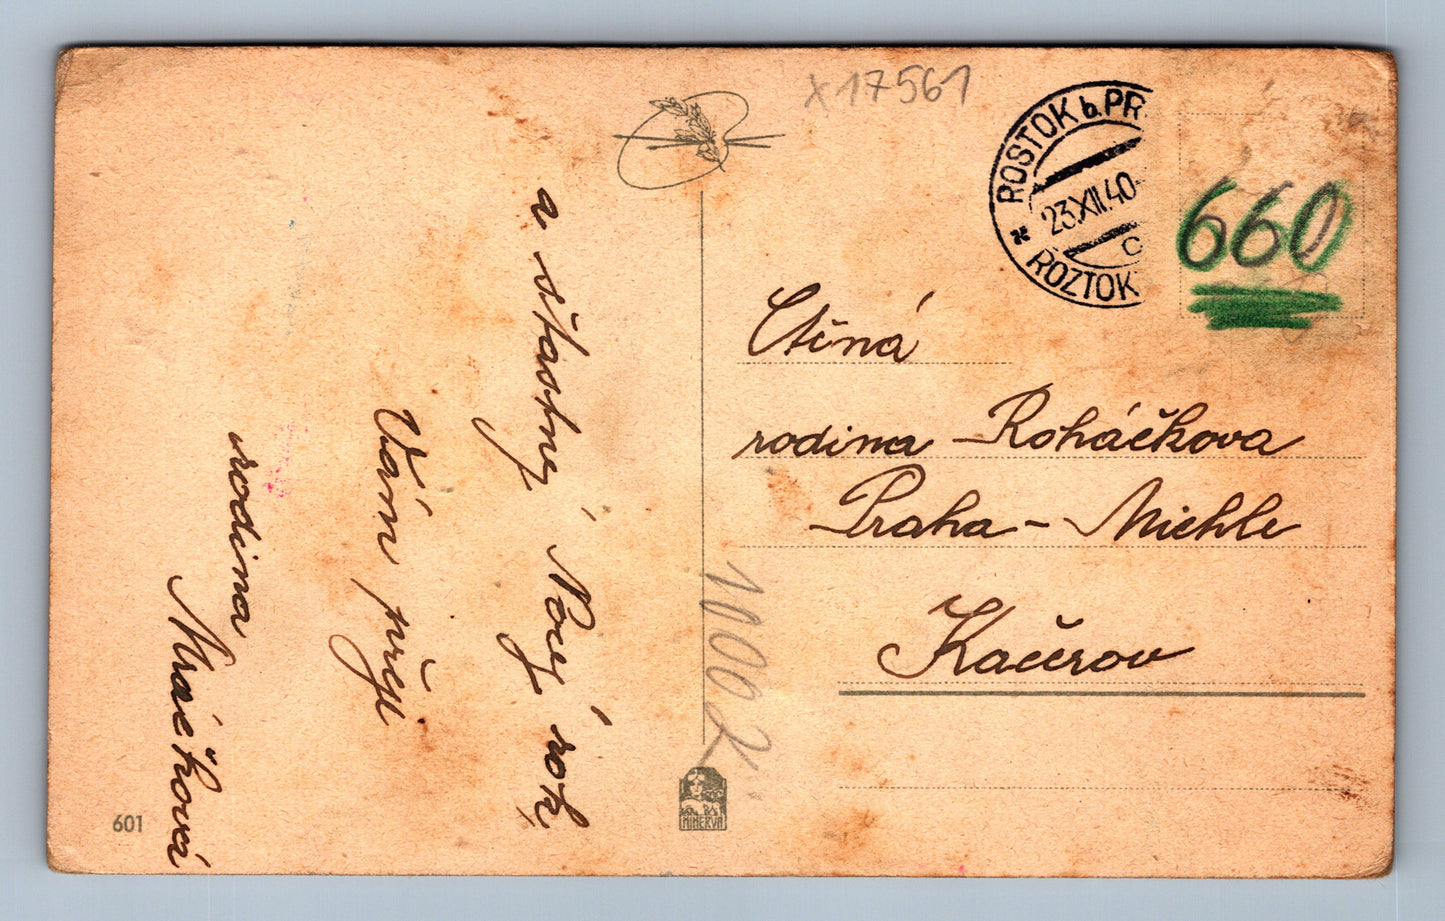 x 17561
ROSTOK b. PR
23.XII.40
c
ROZTOK
660
Ctěná
rodina Roháčkova
Praha - Michle
Kačerov
a šťastný
Nový rok
Vám přeji
rodina
Mráčková
1000 2
MINERVA
601